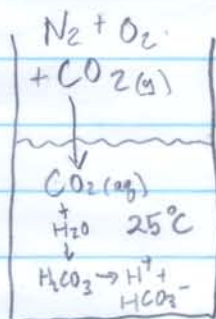 N₂ + O₂
+ CO₂(g)
↓
CO₂(aq)
+
H₂O 25°C
↓
H₂CO₃ → H⁺ +
HCO₃⁻